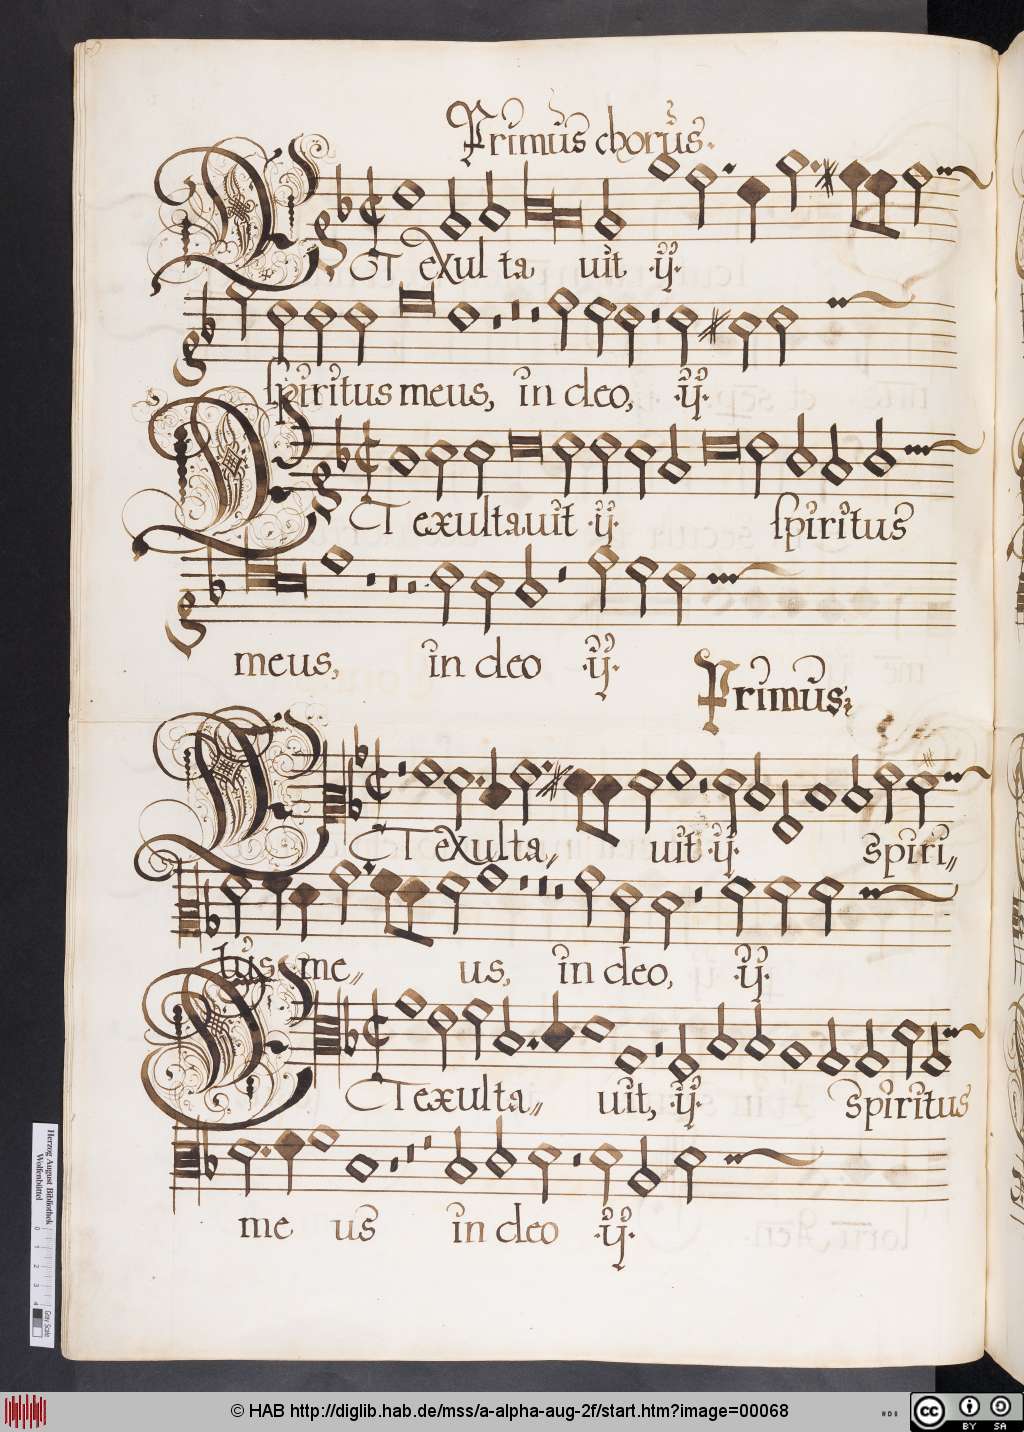 Primus chorus.
ET exul ta uit ·ij·
spiritus meus, in deo, ·ij·
ET exultauit ·ij· spiritus
meus, in deo ·ij·
Primus
ET exulta〃 uit ·ij· spiri〃
tus me〃 us, in deo, ·ij·
ET exulta〃 uit, ·ij· spiritus
me us in deo ·ij·
Herzog August Bibliothek
Wolfenbüttel
0 1 2 3 4
Gray Scale
© HAB http://diglib.hab.de/mss/a-alpha-aug-2f/start.htm?image=00068
cc BY SA